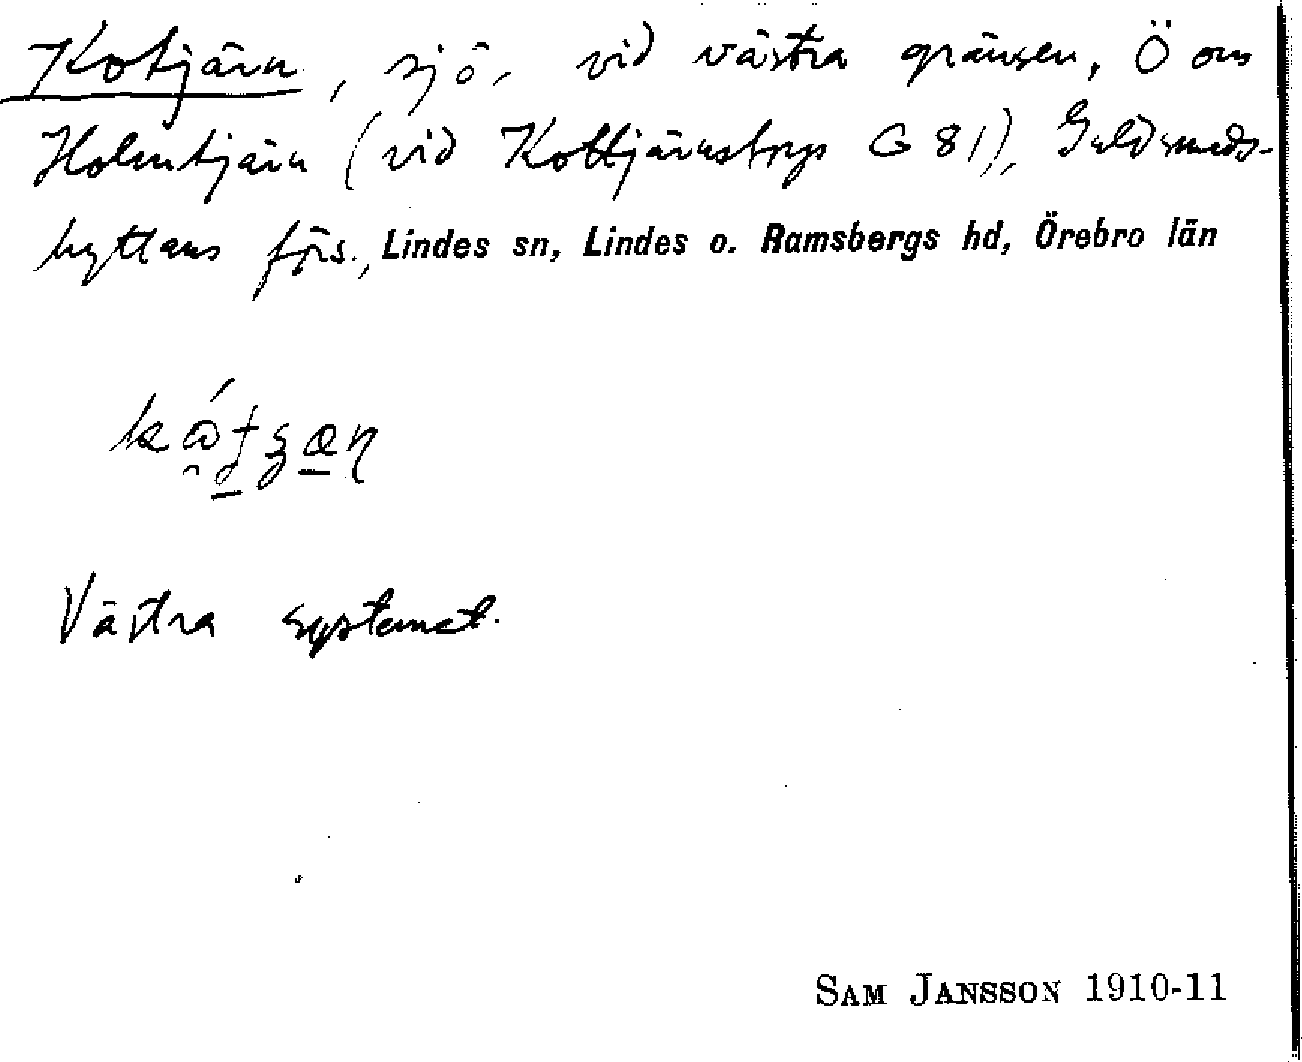 Kotjärn, sjö, vid västra gränsen, Ö om
Holmtjärn (vid Kottjärnstorp G 81), Guldsmeds-
hyttans förs., Lindes sn, Lindes o. Ramsbergs hd, Örebro län
Västra systemet.
SAM JANSSON 1910-11